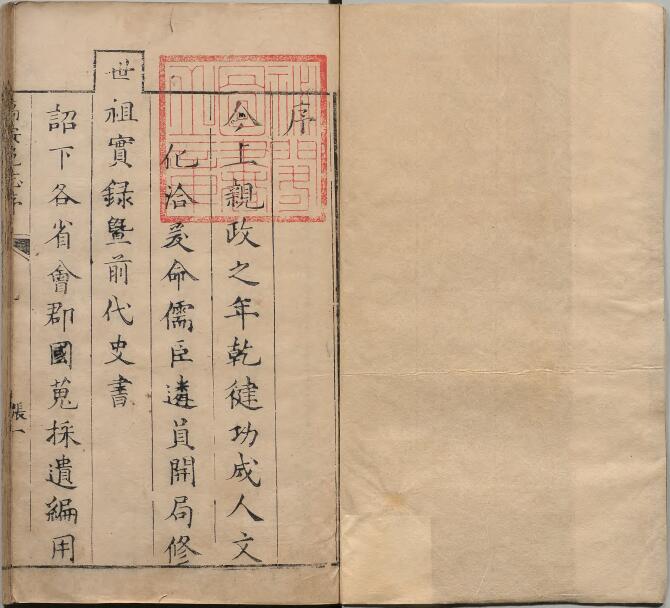 序
今上親政之年乾徤功成人文
化洽爰命儒臣遴員開局修
世祖實録暨前代史書
詔下各省會郡國蒐採遺編用
張一